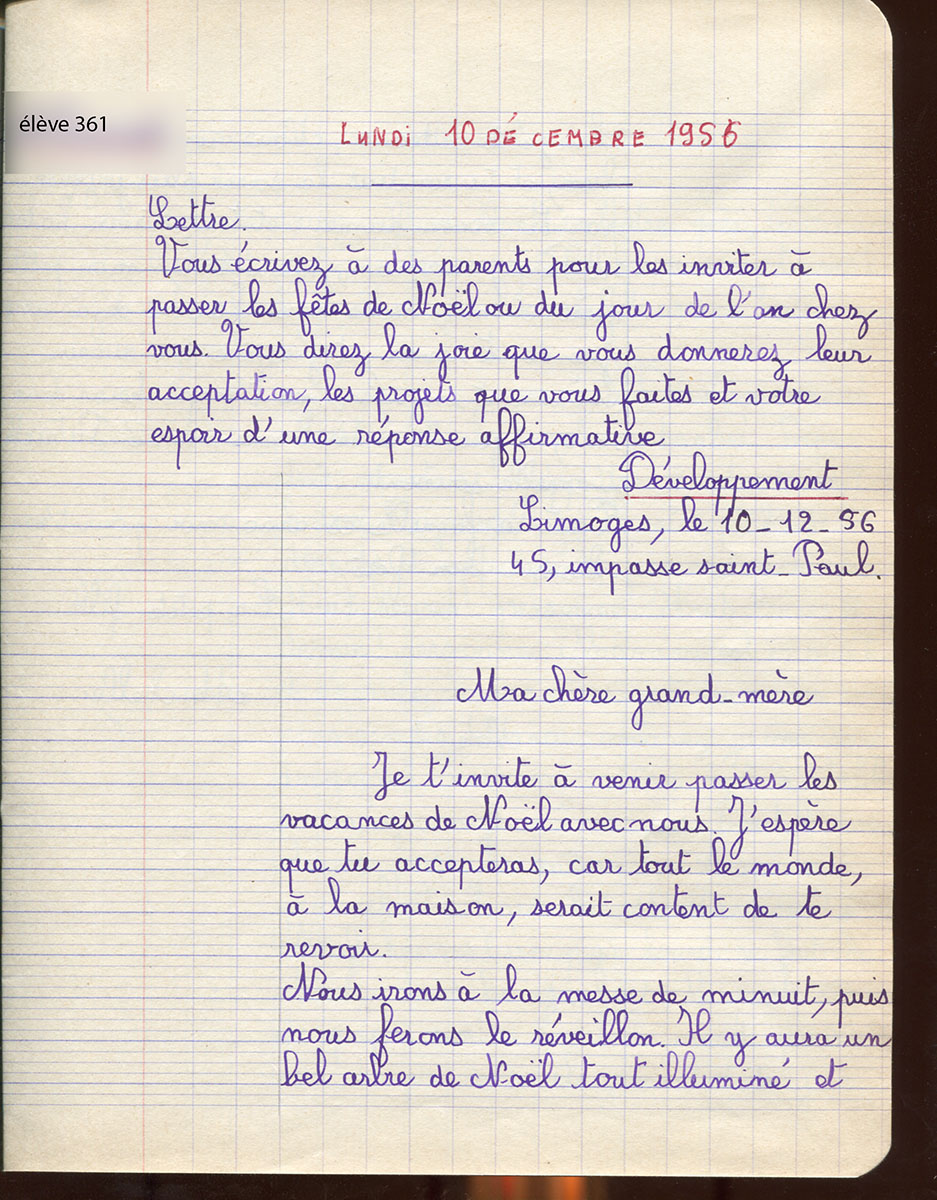 élève 361
LUNDI 10 DÉCEMBRE 1956
Lettre.
Vous écrivez à des parents pour les inviter à
passer les fêtes de Noël ou du jour de l'an chez
vous. Vous direz la joie que vous donnerez leur
acceptation, les projets que vous faites et votre
espoir d'une réponse affirmative
Développement
Limoges, le 10-12-56
45, impasse saint-Paul.
Ma chère grand-mère
Je t'invite à venir passer les
vacances de Noël avec nous. J'espère
que tu accepteras, car tout le monde,
à la maison, serait content de te
revoir.
Nous irons à la messe de minuit, puis
nous ferons le réveillon. Il y aura un
bel arbre de Noël tout illuminé et